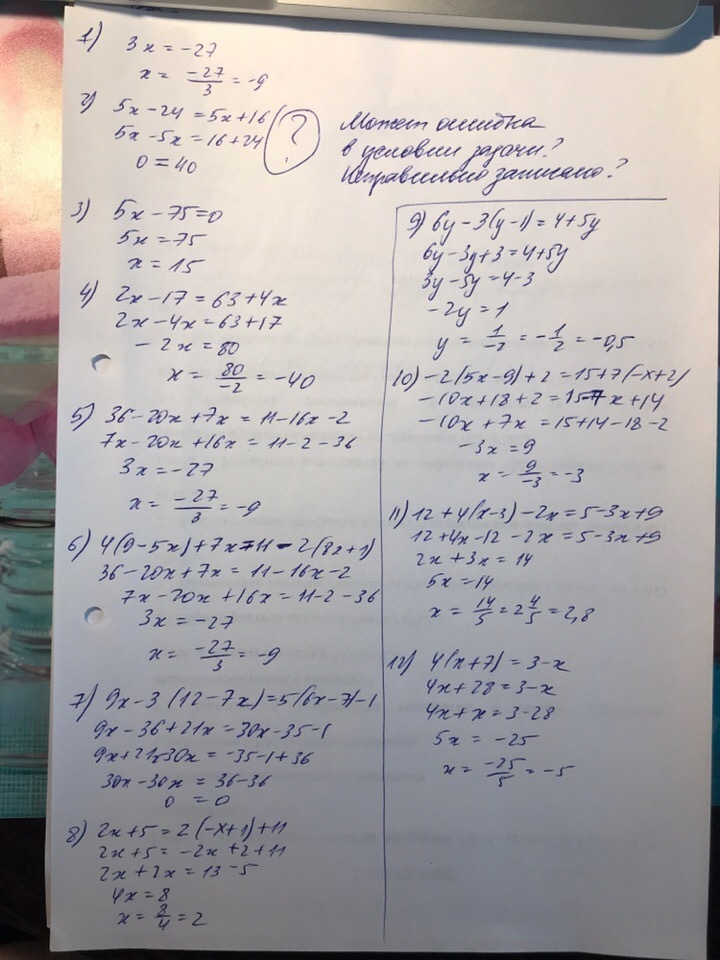 1) 3x = -27
x = -27/3 = -9
2) 5x - 24 = 5x + 16
5x - 5x = 16 + 24
0 = 40
?
Может ошибка
в условии задачи?
Неправильно записано?
3) 5x - 75 = 0
5x = 75
x = 15
4) 2x - 17 = 63 + 4x
2x - 4x = 63 + 17
- 2x = 80
x = 80/-2 = -40
5) 36 - 20x + 7x = 11 - 16x - 2
7x - 20x + 16x = 11 - 2 - 36
3x = -27
x = -27/3 = -9
6) 4(9 - 5x) + 7x = 11 - 2(8x + 1)
36 - 20x + 7x = 11 - 16x - 2
7x - 20x + 16x = 11 - 2 - 36
3x = -27
x = -27/3 = -9
7) 9x - 3(12 - 7x) = 5(6x - 7) - 1
9x - 36 + 21x = 30x - 35 - 1
9x + 21x - 30x = -35 - 1 + 36
30x - 30x = 36 - 36
0 = 0
8) 2x + 5 = 2(-x + 1) + 11
2x + 5 = -2x + 2 + 11
2x + 2x = 13 - 5
4x = 8
x = 8/4 = 2
9) 6y - 3(y - 1) = 4 + 5y
6y - 3y + 3 = 4 + 5y
3y - 5y = 4 - 3
- 2y = 1
y = 1/-2 = -1/2 = -0,5
10) -2(5x - 9) + 2 = 15 + 7(-x + 2)
-10x + 18 + 2 = 15 - 7x + 14
-10x + 7x = 15 + 14 - 18 - 2
-3x = 9
x = 9/-3 = -3
11) 12 + 4(x - 3) - 2x = 5 - 3x + 9
12 + 4x - 12 - 2x = 5 - 3x + 9
2x + 3x = 14
5x = 14
x = 14/5 = 2 4/5 = 2,8
12) 4(x + 7) = 3 - x
4x + 28 = 3 - x
4x + x = 3 - 28
5x = -25
x = -25/5 = -5